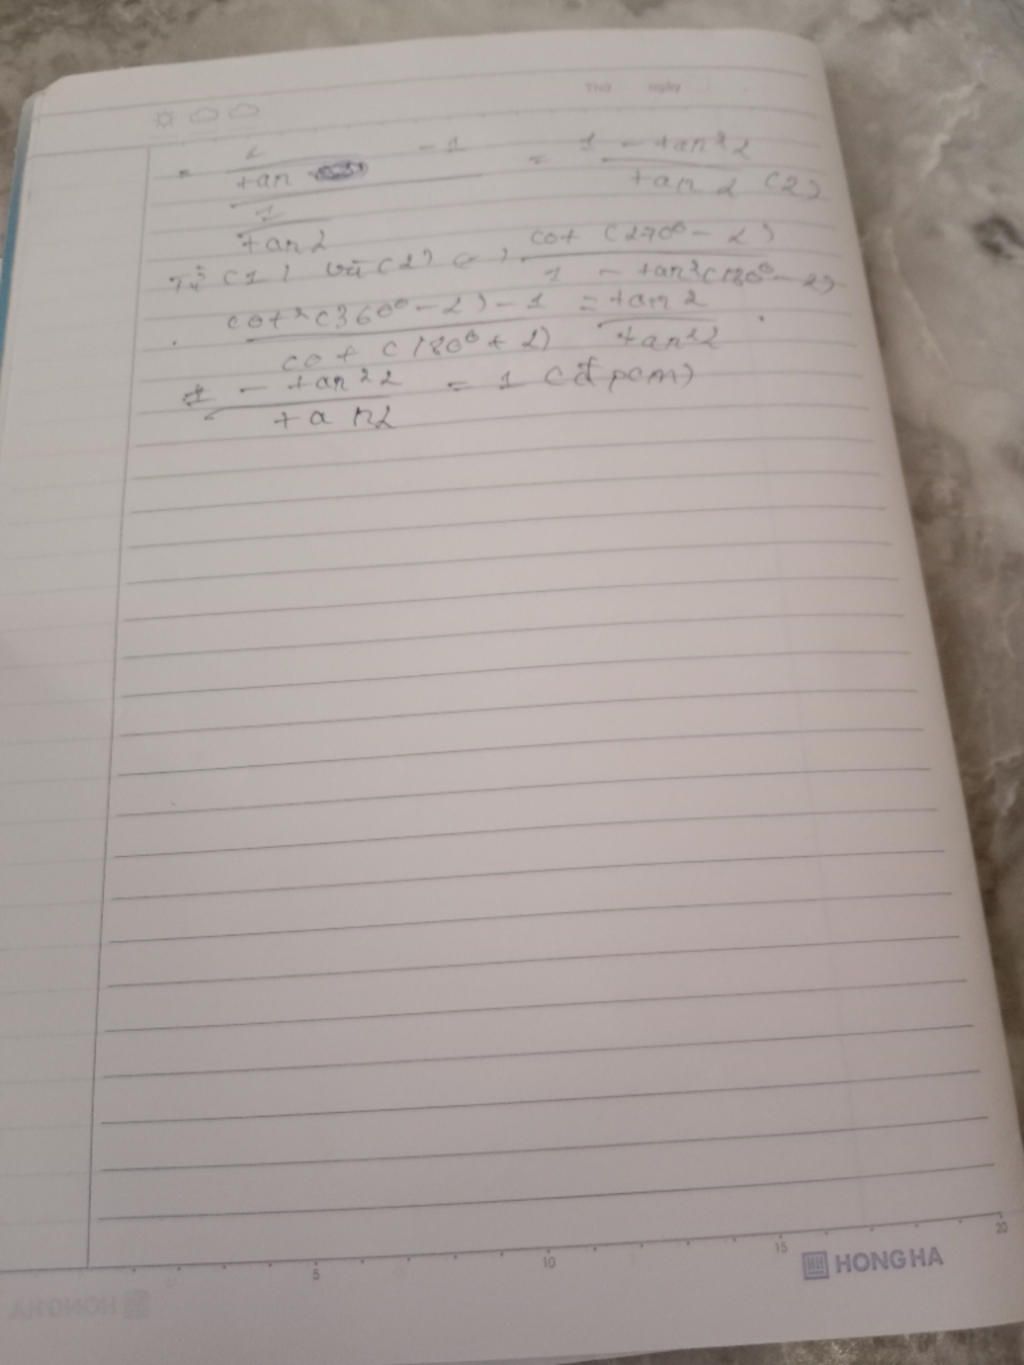 Thứ ngày
= 1/tan - 1 = 1 - tan²α
1/tanα tanα (2)
Từ (1) và (2) => cot (270° - α)
1 - tan²(180° - α)
. cot²(360° - α) - 1 = tanα .
cot (180° + α) tan²α
1 - tan²α = 1 (đpcm)
tanα
5 10 15 20
HONG HA